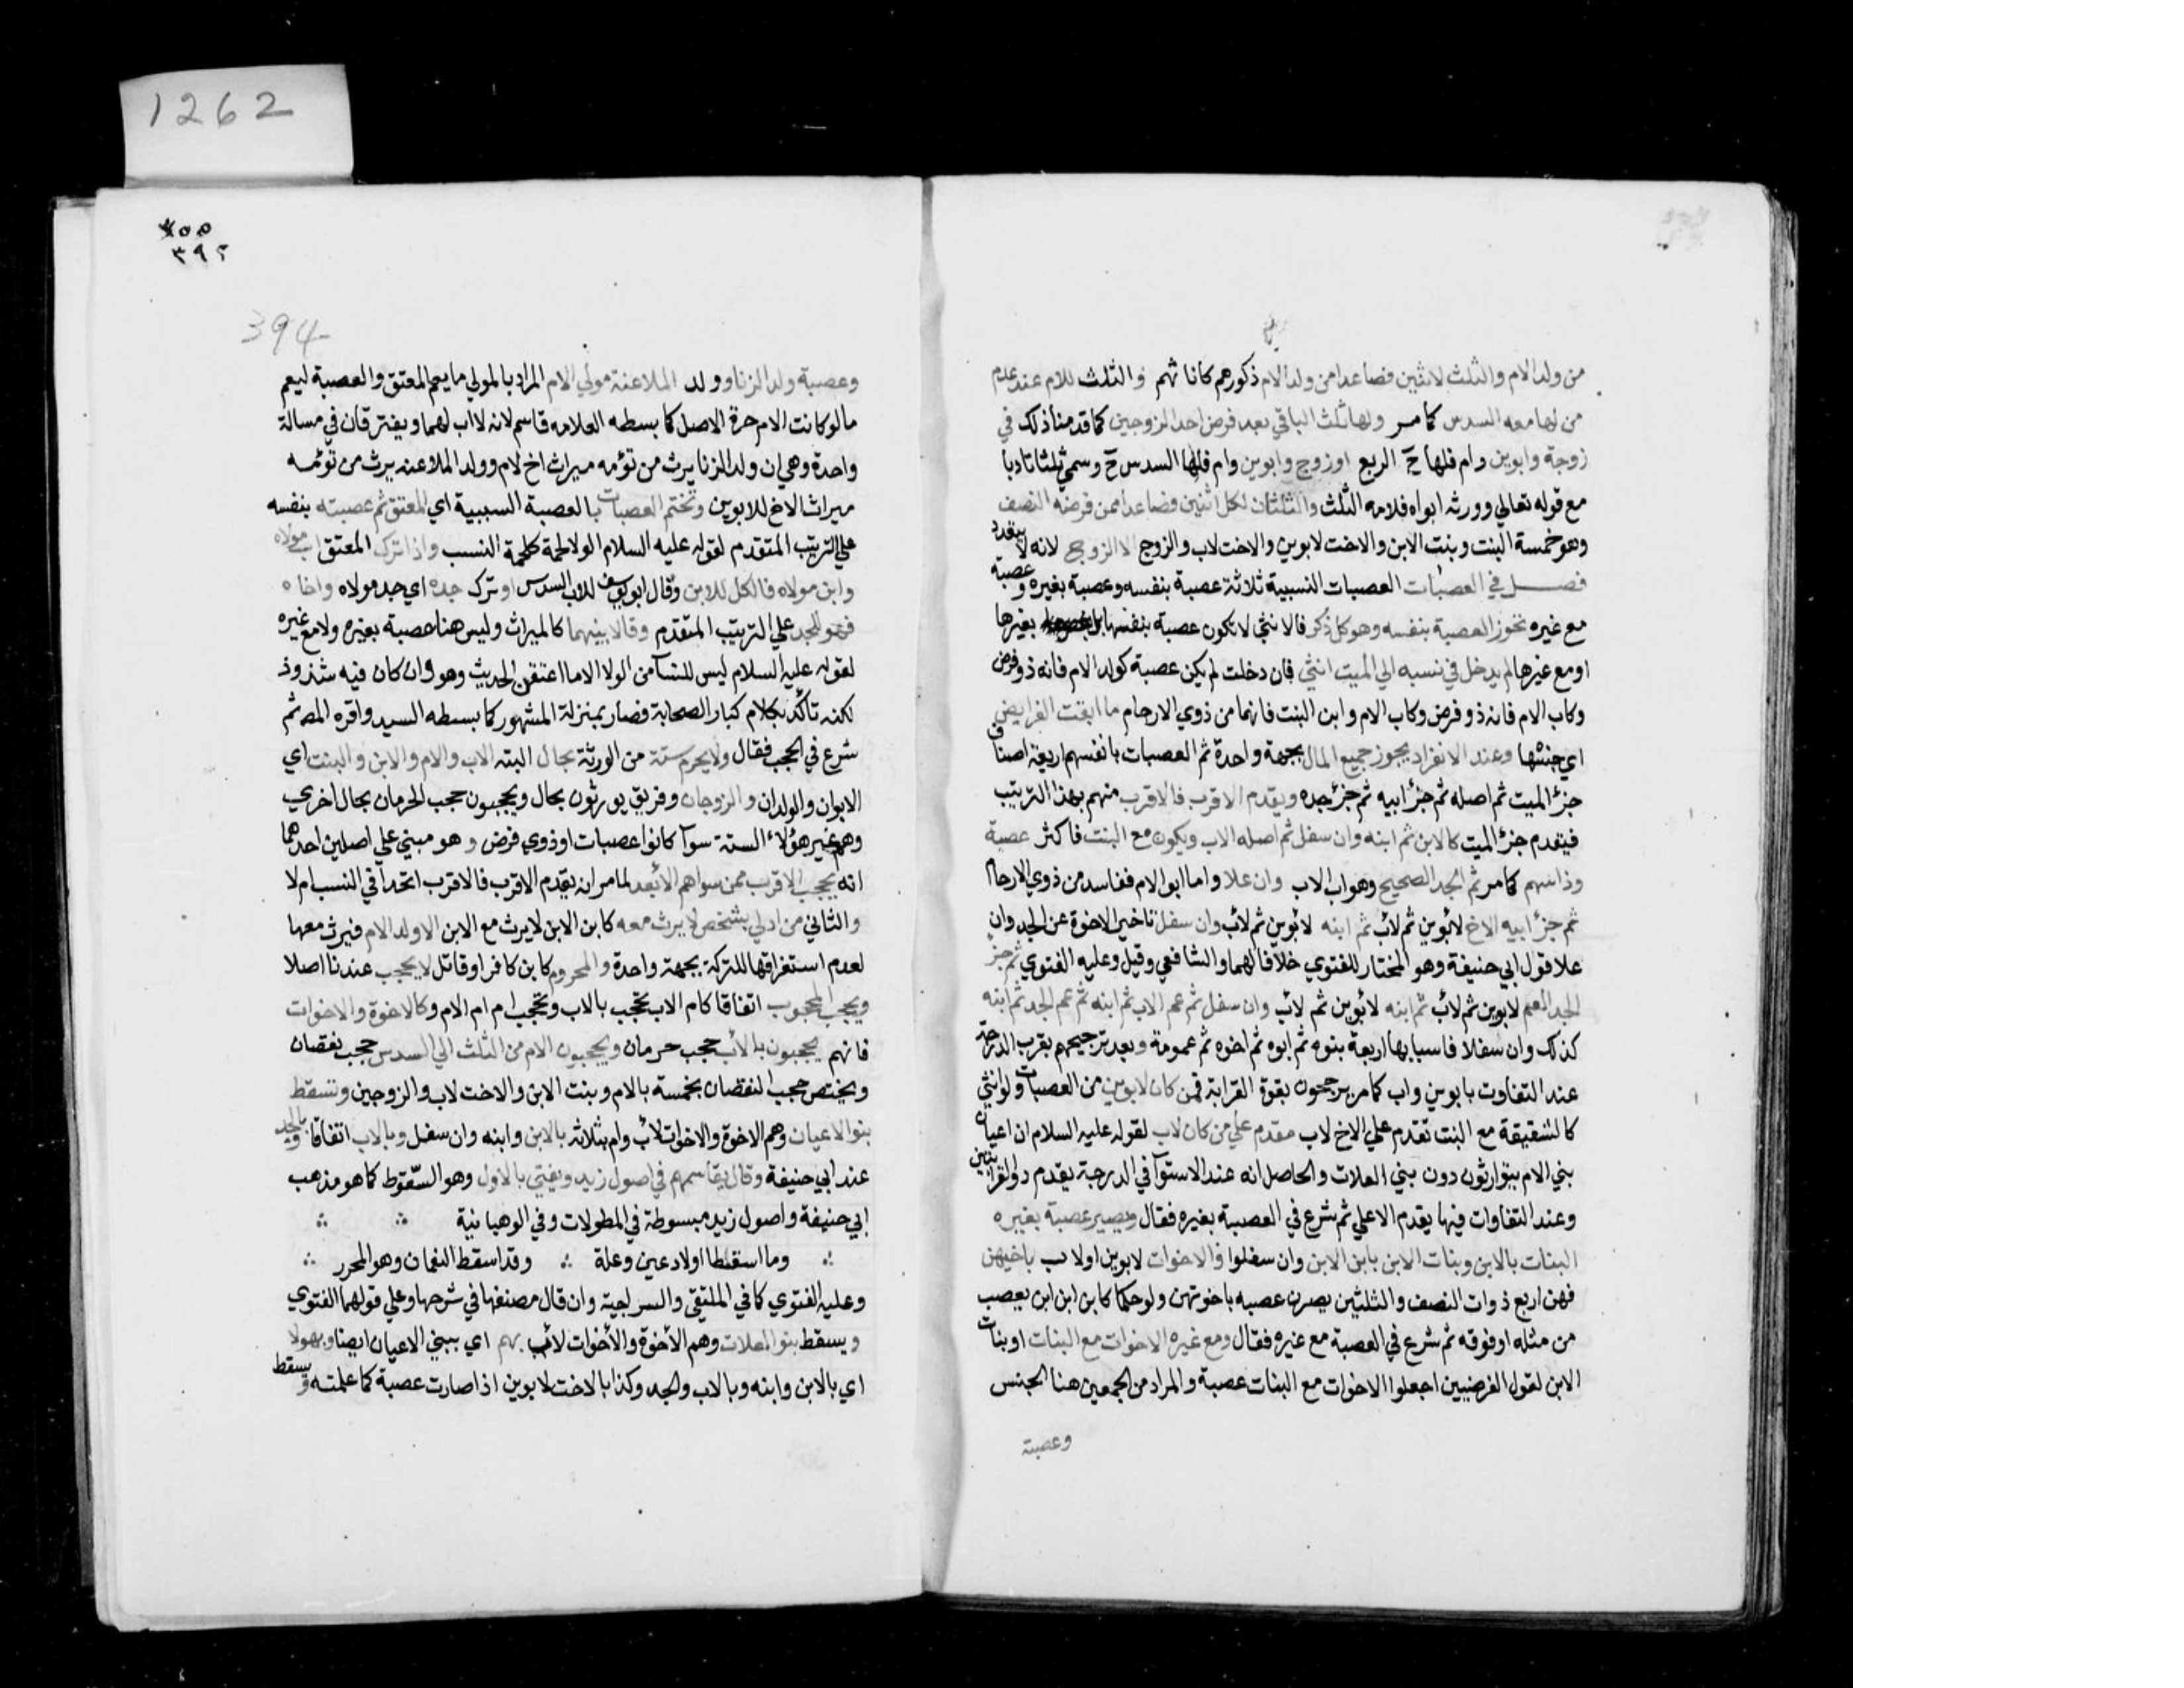 من ولد الام والثلث لاثنين فصاعدا من ولد الام ذكورهم كاناثهم والثلث للام عند عدم
من لها معه السدس كما مر ولها ثلث الباقي بعد فرض احد الزوجين كما قدمنا ذلك في
زوجة وابوين وام فلها ح الربع او زوج وابوين وام فلها السدس ح وسمي ثلثا تادبا
مع قوله تعالي وورثه ابواه فلامه الثلث والثلثان لكل اثنين فصاعدا ممن فرضه النصف
وهو خمسة البنت وبنت الابن والاخت لابوين والاخت لاب والزوج الا الزوج لانه لا يتعدد
فصل في العصبات العصبات النسبية ثلاثة عصبة بنفسه وعصبة بغيره وعصبة
مع غيره تحوز العصبة بنفسه وهو كل ذكر فالانثي لا تكون عصبة بنفسها بل بغيرها
او مع غيرها لم يدخل في نسبه الي الميت انثي فان دخلت لم يكن عصبة كولد الام فانه ذو فرض
وكاب الام فانه ذو فرض وكاب الام وابن البنت فانهما من ذوي الارحام ما ابقت الفرايض
اي جنسها وعند الانفراد يحوز جميع المال بجهة واحدة ثم العصبات بانفسهم اربعة اصناف
جزؤ الميت ثم اصله ثم جزؤ ابيه ثم جزؤ جده ويقدم الاقرب فالاقرب منهم بهذا الترتيب
فيقدم جزؤ الميت كالابن ثم ابنه وان سفل ثم اصله الاب ويكون مع البنت فاكثر عصبة
وذا سهم كما مر ثم الجد الصحيح وهو اب الاب وان علا واما ابو الام ففاسد من ذوي الارحام
ثم جزؤ ابيه الاخ لابوين ثم لاب ثم ابنه لابوين ثم لاب وان سفل تاخير الاخوة عن الجد وان
علا قول ابي حنيفة وهو المختار للفتوي خلافا لهما والشافعي وقيل وعليه الفتوي ثم جزؤ
الجد العم لابوين ثم لاب ثم ابنه لابوين ثم لاب وان سفل ثم عم الاب ثم ابنه ثم عم الجد ثم ابنه
كذلك وان سفلا فاسبابها اربعة بنوه ثم ابوه ثم اخوه ثم عمومة وبعد ترجيحهم بقرب الدرجة
عند التفاوت بابوين واب كما مر يرجحون بقوة القرابة فمن كان لابوين من العصبات ولو انثي
كالشقيقة مع البنت تقدم علي الاخ لاب مقدم علي من كان لاب لقوله عليه السلام ان اعيان
بني الام يتوارثون دون بني العلات والحاصل انه عند الاستوآ في الدرجة يقدم ذو القرابتين
وعند التفاوات فيها يقدم الاعلي ثم شرع في العصبة بغيره فقال ويصير عصبة بغيره
البنات بالابن وبنات الابن بابن الابن وان سفلوا والاخوات لابوين او لاب باخيهن
فهن اربع ذوات النصف والثلثين يصرن عصبه باخوتهن ولو حكما كابن ابن ابن يعصب
من مثله او فوقه ثم شرع في العصبة مع غيره فقال ومع غيره الاخوات مع البنات او بنات
الابن لقول الفرضيين اجعلوا الاخوات مع البنات عصبة والمراد من الجمعين هنا الجنس
وعصبة
1262
٣٩٢
394
وعصبة ولد الزنا وولد الملاعنة مولي الام المراد بالمولي ما يعم المعتق والعصبة ليعم
ما لو كانت الام حرة الاصل كما بسطه العلامه قاسم لانه لا اب لهما ويفترقان في مسالة
واحدة وهي ان ولد الزنا يرث من توءمه ميراث اخ لام وولد الملاعنه يرث من توئمه
ميراث الاخ للابوين وتختم العصبات بالعصبة السببية اي المعتق ثم عصبته بنفسه
علي الترتيب المتقدم لقوله عليه السلام الولا لحمة كلحمة النسب واذا ترك المعتق اب مولاه
وابن مولاه فالكل للابن وقال ابو يوسف للاب السدس او ترك جده اي جد مولاه واخاه
فهو للجد علي الترتيب المتقدم وقالا بينهما كالميراث وليس هنا عصبة بغيره ولا مع غيره
لقوله عليه السلام ليس للنسآ من الولا الا ما اعتقن الحديث وهو وان كان فيه شذوذ
لكنه تاكد بكلام كبار الصحابة فصار بمنزلة المشهور كما بسطه السيد واقره المص ثم
شرع في الحجب فقال ولا يحرم ستة من الورثة بحال البته الاب والام والابن والبنت اي
الابوان والولدان والزوجان وفريق يورثون بحال ويحجبون حجب الحرمان بحال اخري
وهم غير هؤلاء الستة سوآ كانوا عصبات او ذوي فرض وهو مبني علي اصلين احدهما
انه يحجب الاقرب ممن سواهم الابعد لما مر انه يقدم الاقرب فالاقرب اتحدا في النسب ام لا
والثاني من ادلي بشخص لا يرث معه كابن الابن لا يرث مع الابن الا ولد الام فيرث معها
لعدم استغراقها للتركة بجهة واحدة والمحروم كابن كافر او قاتل لا يحجب عندنا اصلا
ويحجب المحجوب اتفاقا كام الاب تحجب بالاب وتحجب ام ام الام وكالاخوة والاخوات
فانهم يحجبون بالاب حجب حرمان ويحجبون الام من الثلث الي السدس حجب نقصان
ويختص حجب النقصان بخمسة بالام وبنت الابن والاخت لاب والزوجين وتسقط
بنو الاعيان وهم الاخوة والاخوات لاب وام بثلاثة بالابن وابنه وان سفل وبالاب اتفاقا وبالجد
عند ابي حنيفة وقال يقاسمهم في اصول زيد ويفتي بالاول وهو السقوط كما هو مذهب
ابي حنيفة واصول زيد مبسوطة في المطولات وفي الوهبانية
وما اسقطا اولاد عين وعلة وقد اسقط النعمان وهو المحرر
وعليه الفتوي كما في الملتقي والسراجية وان قال مصنفها في شرحها وعلي قولهما الفتوي
ويسقط بنو العلات وهم الاخوة والاخوات لاب بهم اي ببني الاعيان ايضا وبهولا
اي بالابن وابنه وبالاب والجد وكذا بالاخت لابوين اذا صارت عصبة كما علمته ويسقط